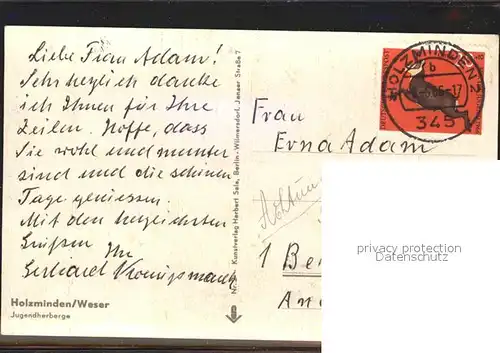 Liebe Frau Adam!
Sehr herzlich danke
ich Ihnen für Ihre
Zeilen. Hoffe, dass
Sie wohl und munter
sind und die schönen
Tage geniessen.
Mit den herzlichsten
Grüßen Ihr
Gerhard
Holzminden/Weser
Jugendherberge
Kunstverlag Herbert Sala, Berlin-Wilmersdorf, Jenaer Straße 7
HOLZMINDEN 2
b
-17
345
Frau
Erna Adam
1 Be
An
privacy protection
Datenschutz